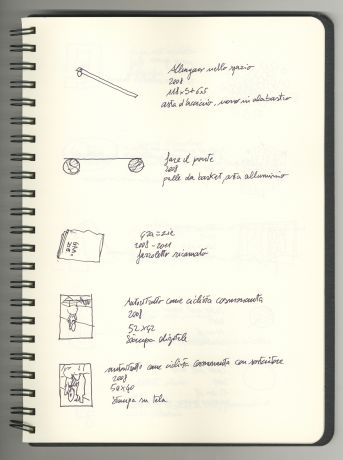 nello spazio
2008
asta d'acciaio, uovo in alabastro
fare il ponte
2008
palle da basket, asta alluminio
2008 - 2011
fazzoletto ricamato
Autoritratto come ciclista cosmonauta
2008
52x42
Stampa digitale
autoritratto come ciclista cosmonauta con sostenitore
2008
50x40
Stampa su tela